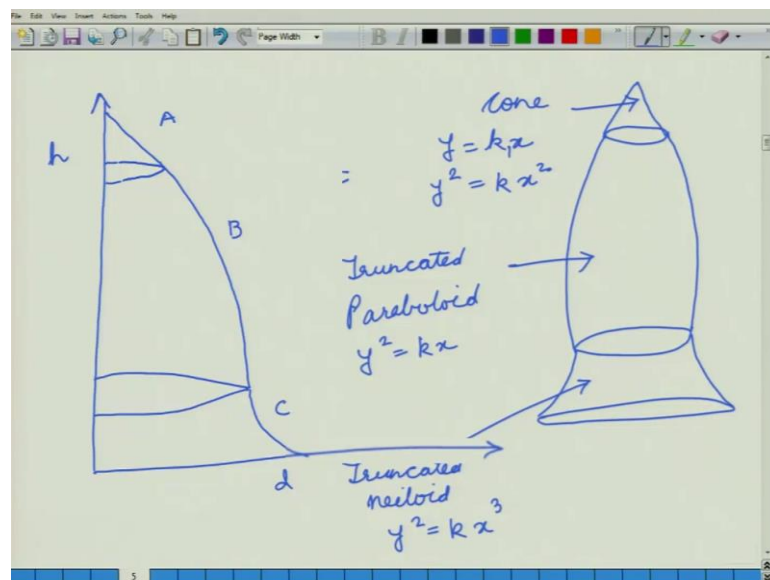 File Edit View Insert Actions Tools Help
Page Width
B I
A
h
B
C
d
=
Cone
y = k₁x
y² = k x²
Truncated
Paraboloid
y² = kx
Truncated
neiloid
y² = k x³
5